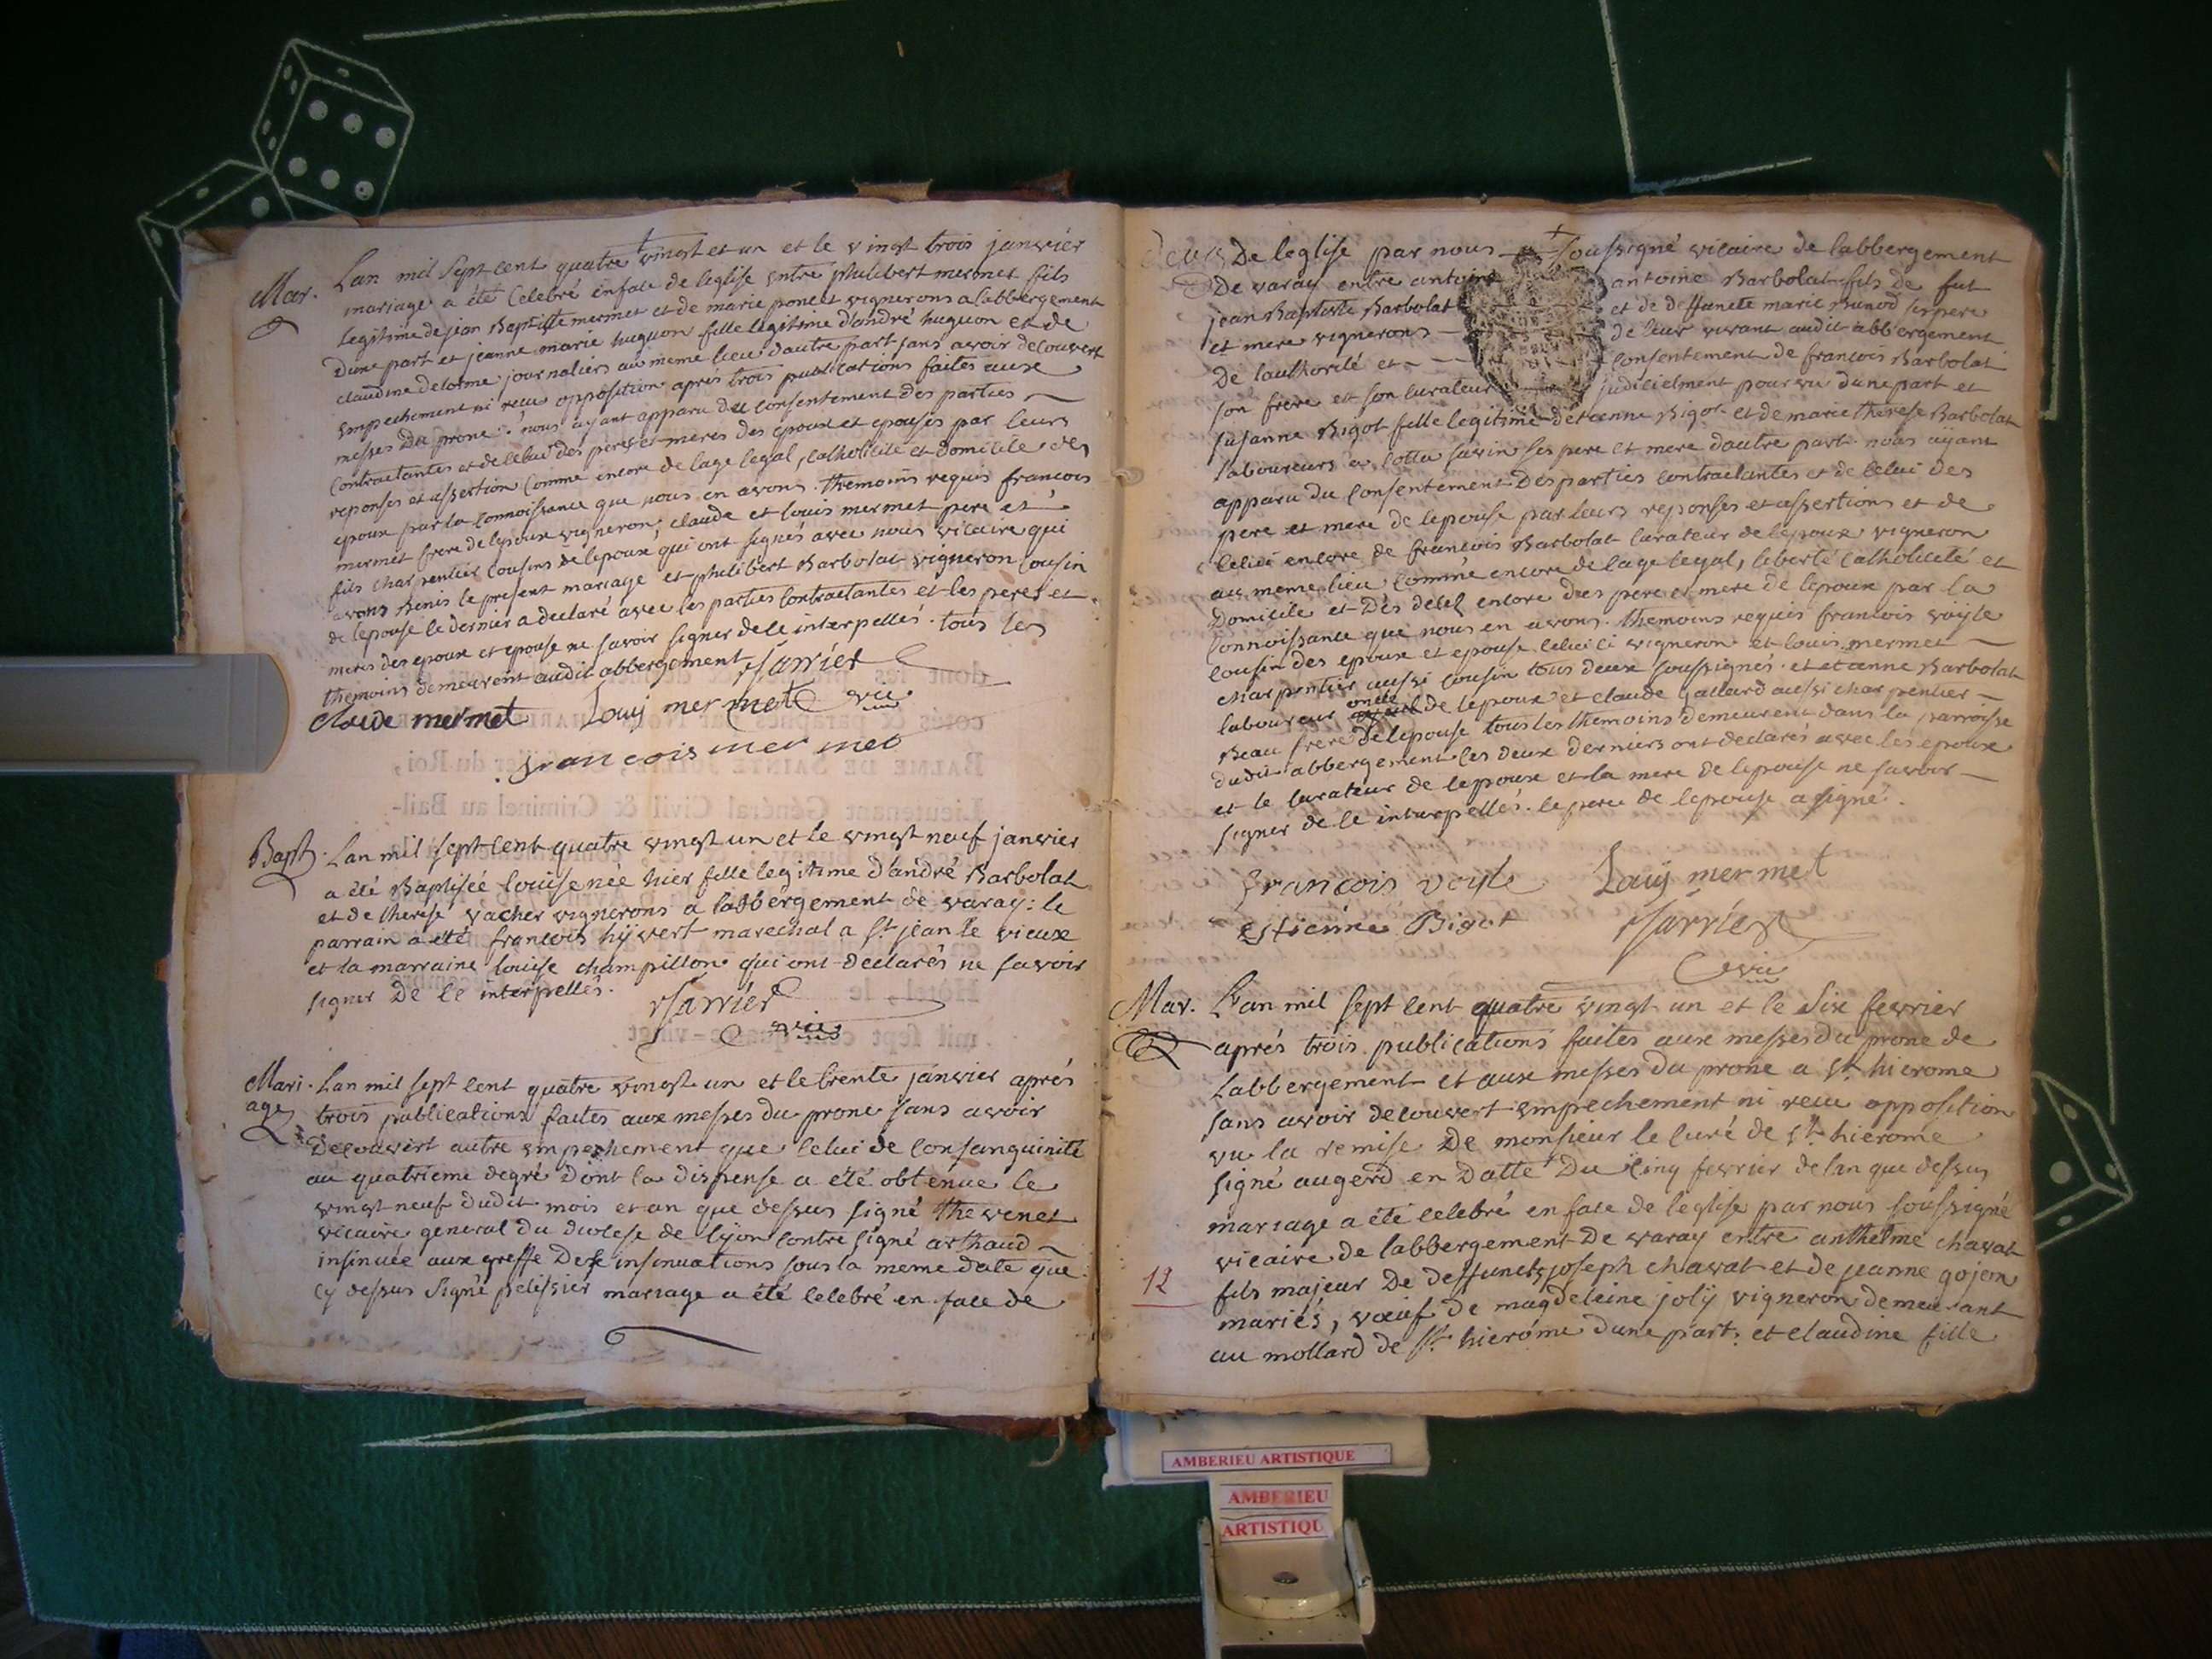 Mar. Lan mil sept cent quatre vingt et un et le vingt trois janvier
mariage a été celebré en face de leglise entre philibert mermet fils
legitime de jean Baptiste mermet et de marie poncet vignerons a labbergement
Dune part et jeanne marie huguon fille legitime d'andré huguon et de
claudine delorme journaliers au meme lieu dautre part sans avoir decouvert
empechement ni recu opposition aprés trois publications faites aux
messes Du prone. nous ayant apparu du consentement des parties
contractantes et de celui des peres et meres des epoux et epouses par leurs
reponses et assertion comme encore de lage legal, catholicité et domicile des
epoux par la connoissance que nous en avons. themoins requis francois
mermet frere de lepoux vigneron, claude et louis mermet pere et
fils charpentier cousins de lepoux qui ont signés avec nous vicaire qui
avons Benis le present mariage et philibert Barbolat vigneron cousin
de lepouse le dernier a declaré avec les parties contractantes et les peres et
meres des epoux et epouse ne savoir signer de ce interpellés. tous les
themoins demeurent audit abbergement
claude mermet Louy mermet vic
francois mermet
Bapt. Lan mil sept cent quatre vingt un et le vingt neuf janvier
a été Baptisée louise née hier fille legitime d'andré Barbolat
et de therese vacher vignerons a labbergement de varay: le
parrain a été francois hÿvert marechal a st jean le vieux
et la marraine louise champillon qui ont declarés ne savoir
signer De ce interpellés.
vic
Mari- Lan mil sept cent quatre vingt un et le trente janvier aprés
age trois publications faites aux messes du prone sans avoir
Decouvert autre empechement que celui de consanguinité
au quatrieme degré Dont la dispense a été obtenue le
vingt neuf dudit mois et an que dessus signé thevenet
vicaire general du diocese de lÿon contre signé arthaud
insinuée aux greffe Des insinuations sous la meme date que
cy dessus Signé pelissier mariage a été celebré en face de
De leglise par nous soussigné vicaire de labbergement
De varay entre antoine antoine Barbolat fils de fut
jean Baptiste Barbolat et de deffunete marie Bunod ses pere
et mere vignerons de leur vivant audit abbergement
De lauthorité et consentement de francois Barbolat
son frere et son curateur judicielment pourvu dune part et
susanne Bigot fille legitime detienne Bigot et de marie therese Barbolat
laboureurs a ses pere et mere dautre part. nous aÿant
apparu du consentement Des parties contractantes et de celui des
pere et mere de lepouse par leurs reponses et assertions et de
celui encore de francois Barbolat curateur de lepoux vigneron
au meme lieu, comme encore de lage legal, liberté catholicité et
Domicile et Des encore des pere et mere de lepoux par la
connoissance que nous en avons. themoins requis francois voÿle
cousin des epoux et epouse celui ci vigneron et louis mermet
charpentier aussi cousin tous deux soussignés. et etienne Barbolat
laboureur oncle de lepoux et claude gallard aussi charpentier
Beau frere de lepouse tous les themoins demeurent dans la parroisse
dudit abbergement les deux derniers ont declarés avec les epoux
et le curateur de lepoux et la mere de lepouse ne savoir
signer de ce interpellés. le pere de lepouse a signé.
francois voyle Louÿ mermet
estienne Bigot
vic
Mar. Lan mil sept cent quatre vingt un et le six fevrier
aprés trois publications faites aux messes du prone de
Labbergement et aux messes du prone a st. hierome
sans avoir decouvert empechement ni recu opposition
vu la remise De monsieur le curé de st. hierome
signé augerd en Datte Du cinq fevrier de lan que dessus
mariage a été celebré en face de leglise par nous soussigné
vicaire de labbergement De varay entre anthelme chavat
12 fils majeur De deffuncts joseph chavat et de jeanne gojon
mariés, vœuf de magdeleine jolÿ vigneron demeurant
au mollard de st. hierôme dune part. et claudine fille
AMBERIEU ARTISTIQUE
AMBERIEU
ARTISTIQU